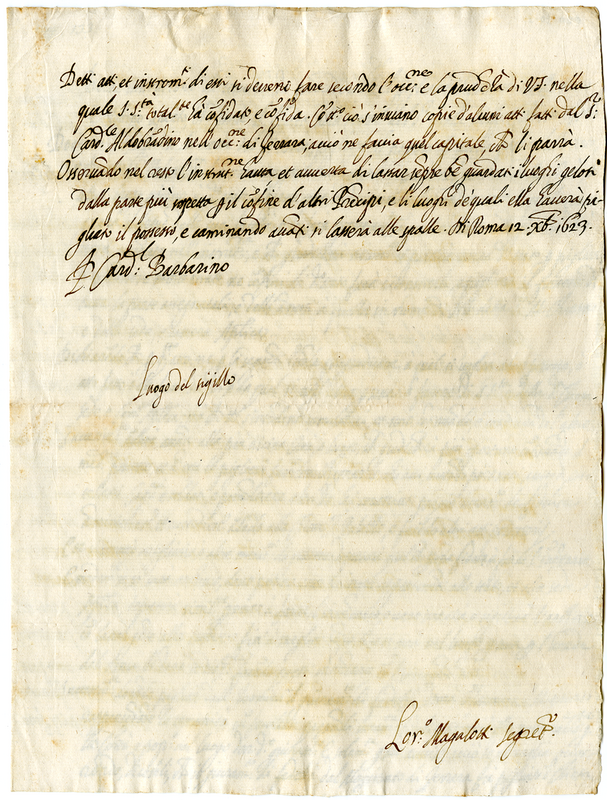 Detti atti, et instrom.ti di essi si deveno fare secondo l'occ.ne e la prud.za di VS. nella
quale S. S.tà total.te hà cōfidato, e cōfida. Cō tt.o ciò s'inviano copie d'alcuni atti fatti dal S.r
Card.le Aldobrādino nell'occ.ne di Ferrara, acciò ne faccia quel capitale ch li parrà.
Osservādo nel resto l'instrut.ne havuta et avverta di lassar sēpre bē guardati i luoghi gelosi
dalla parte più sospetta p il cōfine d'altri Prēcipi, e li luoghi de quali ella haverà pi-
gliato il possesso, e caminando avāti si lasserà alle spalle. Di Roma 12. Xbr. 1623.
Card.l Barbarino
Luogo del sigillo
Lor.o Magalotti Segret.o